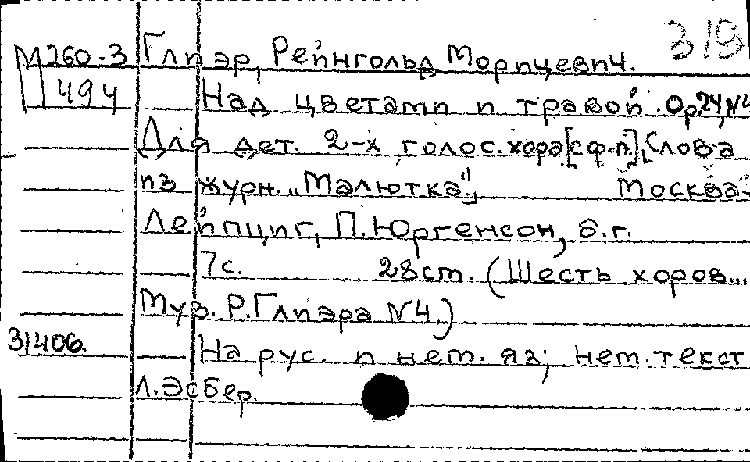 319
М260-3 Глиэр, Рейнгольд Морицевич.
494 Над цветами и травой. Op.24,№4
Для дет. 2-х голос. хора [с ф-п]. Слова
из журн. „Малютка". Москва-
Лейпциг, П. Юргенсон, б.г.
7с. 28см. (Шесть хоров...
Муз. Р. Глиэра №4.)
31406. На рус. и нем. яз; нем. текст
Л. Эсбер.